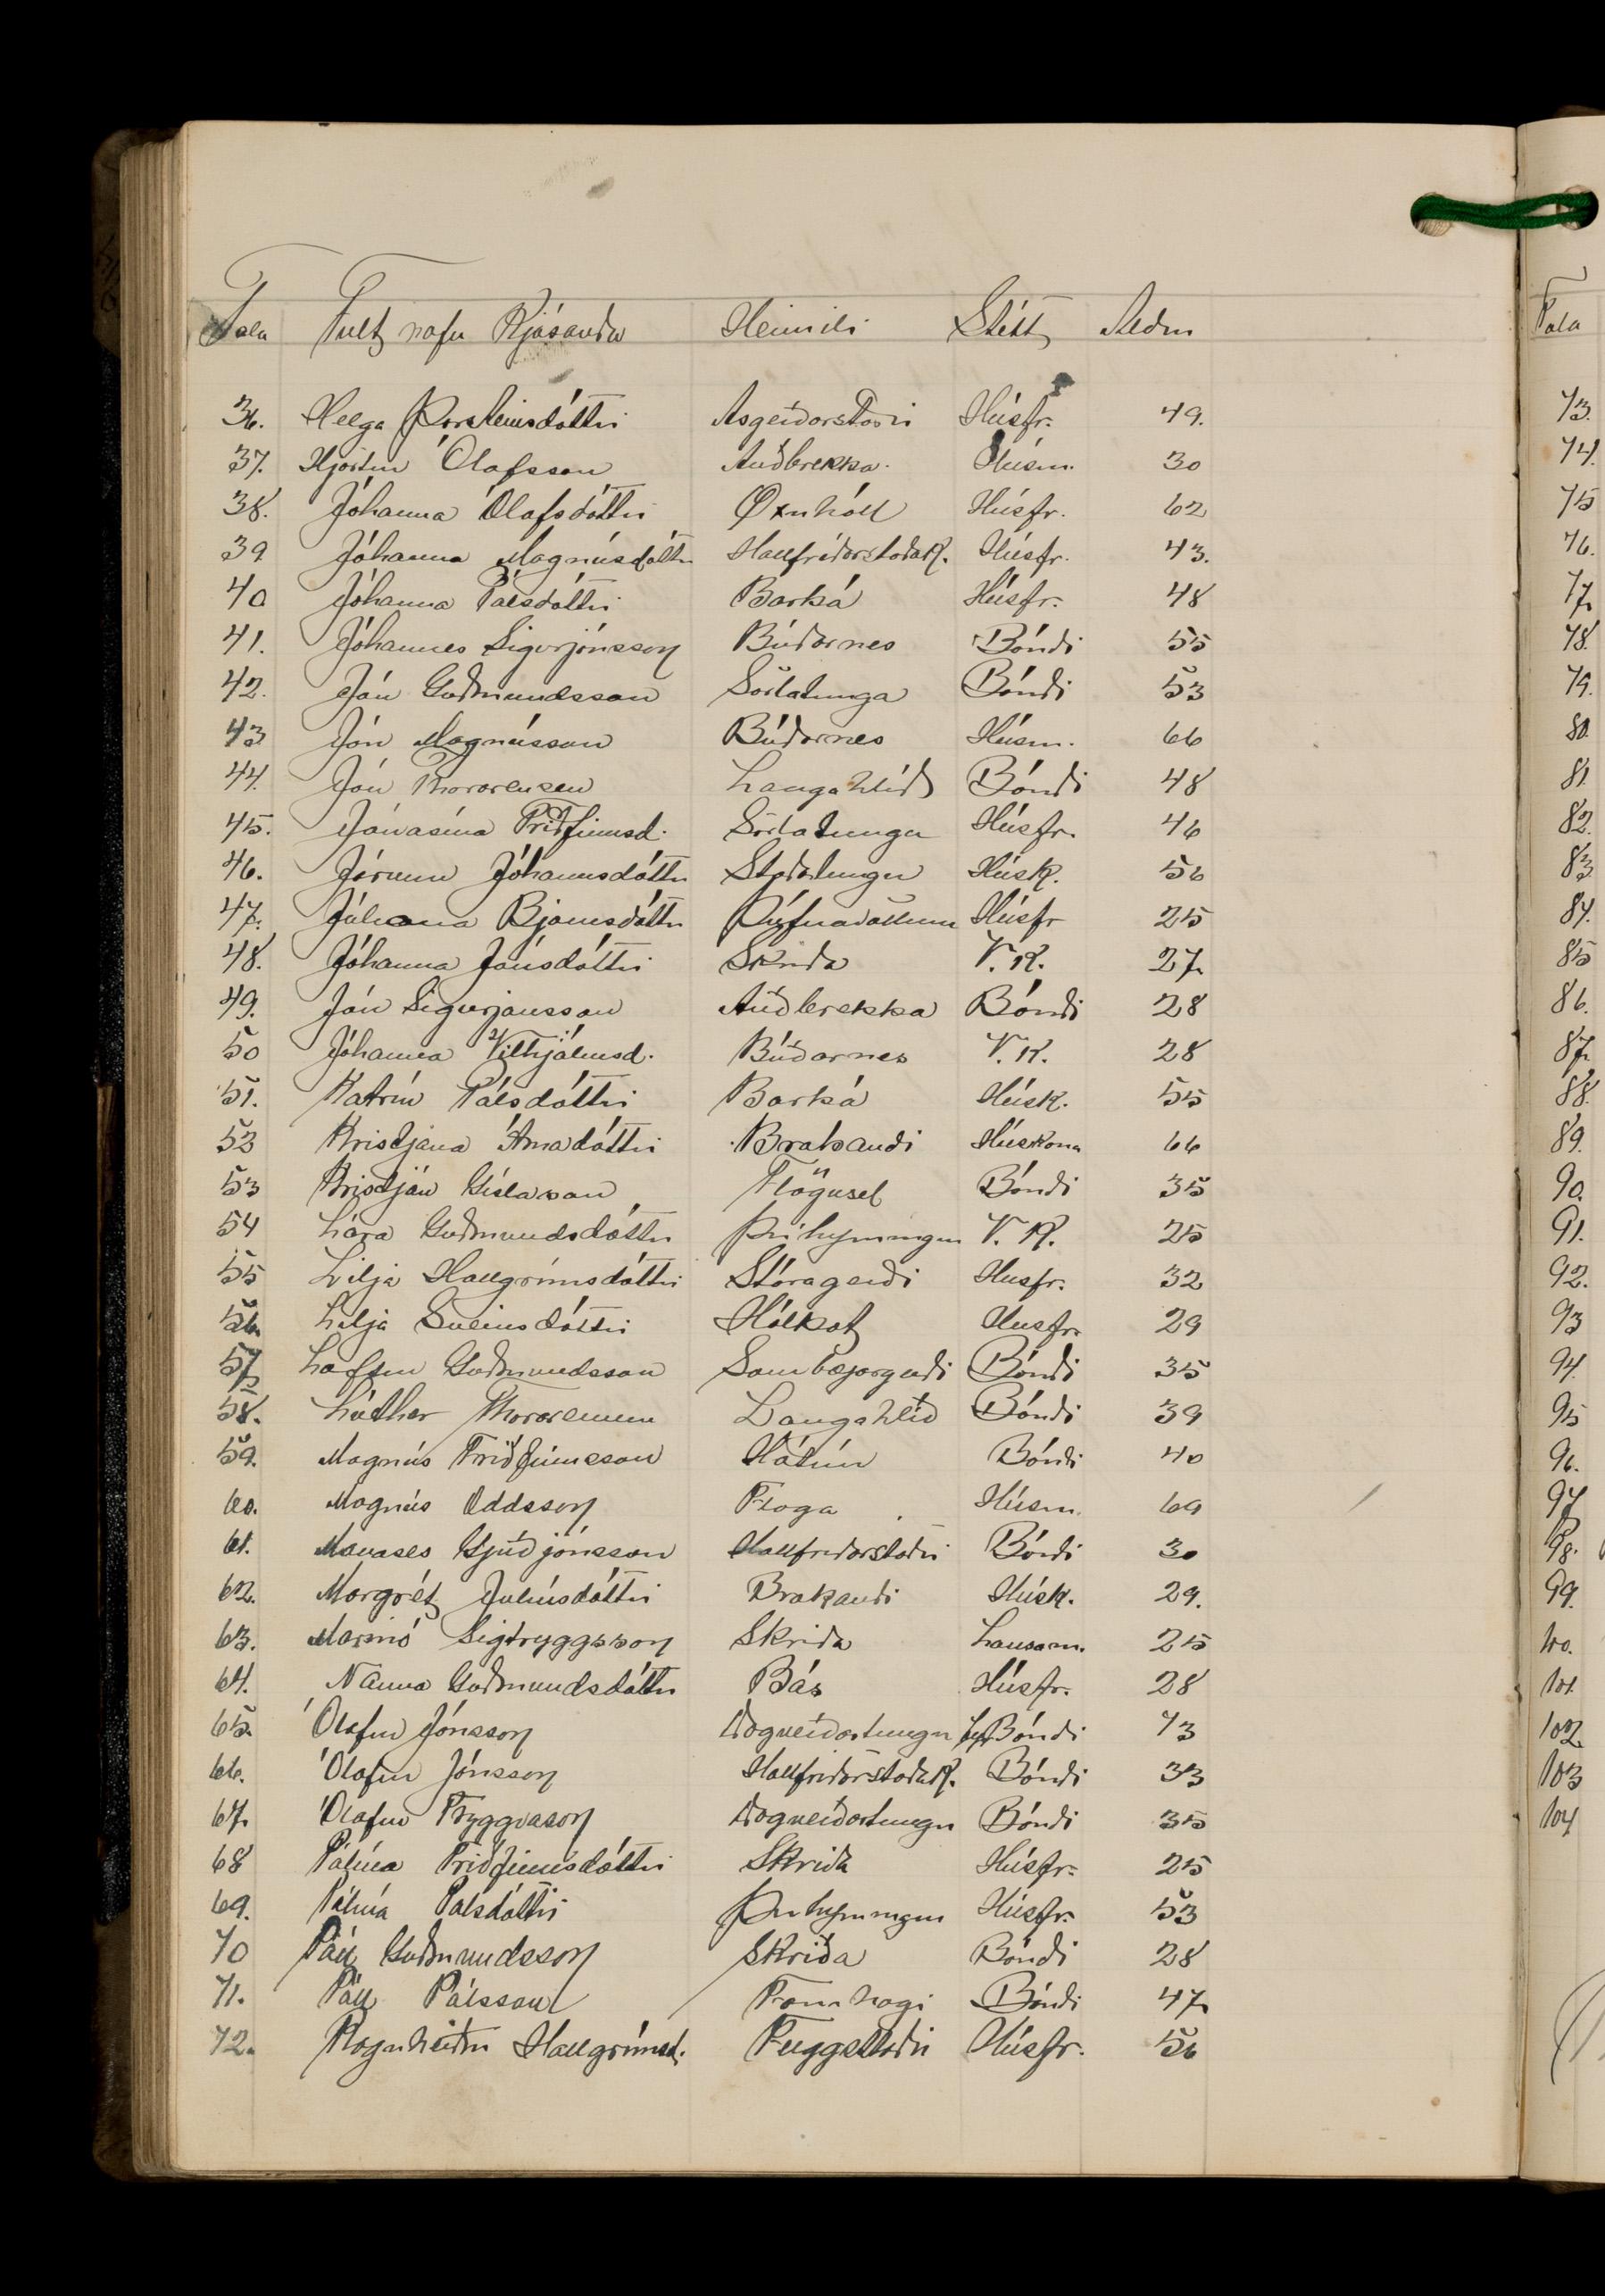 Tala Fult nafn Kjósanda Heimili Stétt Aldur
36. Helga Þorsteinsdóttir Ásgerðarstaðir Húsfr. 49.
37. Hjörtur Ólafsson Auðbrekka. Húsm. 30
38. Jóhanna Ólafsdóttir Öxnhóll Húsfr. 62
39 Jóhanna Magnúsdóttir HallfríðarstaðaK. Húsfr. 43.
40 Jóhanna Pálsdóttir Barká Húsfr. 48
41. Jóhannes Sigurjónsson Búðarnes Bóndi 55
42. Jón Guðmundsson Sörlatunga Bóndi 53
43 Jón Magnússon Búðarnes Húsm. 66
44. Jón Thorarensen Langahlíð Bóndi 48
45. Jónasína Friðfinnsd. Sörlatunga Húsfr. 46
46. Jórunn Jóhannsdóttir Staðartunga Húsk. 56
47. Júlíana Bjarnsdóttir Þúfnavöllum Húsfr 25
48. Jóhanna Jónsdóttir Skriða V.K. 27
49. Jón Sigurjónsson Auðbrekka Bóndi 28
50 Jóhanna Vilhjálmsd. Búðarnes V.K. 28
51. Katrín Pálsdóttir Barká Húsk. 55
52 Kristjana Árnadóttir Brakandi Húskona 66
53 Kristján Gíslason Flögusel Bóndi 35
54 Lára Guðmundsdóttir Þríhyrningur V.K. 25
55 Lilja Hallgrímsdóttir Stóragerði Húsfr. 32
56. Lilja Sveinsdóttir Hólkot Húsfr. 29
57 Loftur Guðmundsson Saurbæjargerði Bóndi 35
58. Lúther Thorarensen Langahlíð Bóndi 39
59. Magnús Friðfinnsson Hátún Bóndi 40
60. Magnús Oddsson Flaga Húsm. 69
61. Manases Guðjónsson Hallfríðarstaðir Bóndi 30
62. Margrét Júlíusdóttir Brakandi Húsk. 29.
63. Marinó Sigtryggsson Skriða Lausam. 25
64. Nanna Guðmundsdóttir Bás Húsfr. 28
65. Ólafur Jónsson Dagverðartunga Bóndi 73
66. Ólafur Jónsson HallfríðarstaðaK. Bóndi 33
67. Ólafur Tryggvason Dagverðartunga Bóndi 35
68 Pálína Friðfinnsdóttir Skriða Húsfr. 25
69. Pálína Pálsdóttir Þríhyrningur Húsfr. 53
70 Páll Guðmundsson Skriða Bóndi 28
71. Páll Pálsson Fornhagi Bóndi 47
72. Ragnheiður Hallgrímsd. Flöguggstaðir Húsfr. 56
Tala
73.
74.
75
76.
77
78.
79.
80.
81.
82.
83
84.
85
86.
87.
88.
89.
90.
91.
92.
93
94.
95
96.
97
98.
99.
100.
101
102.
103
104